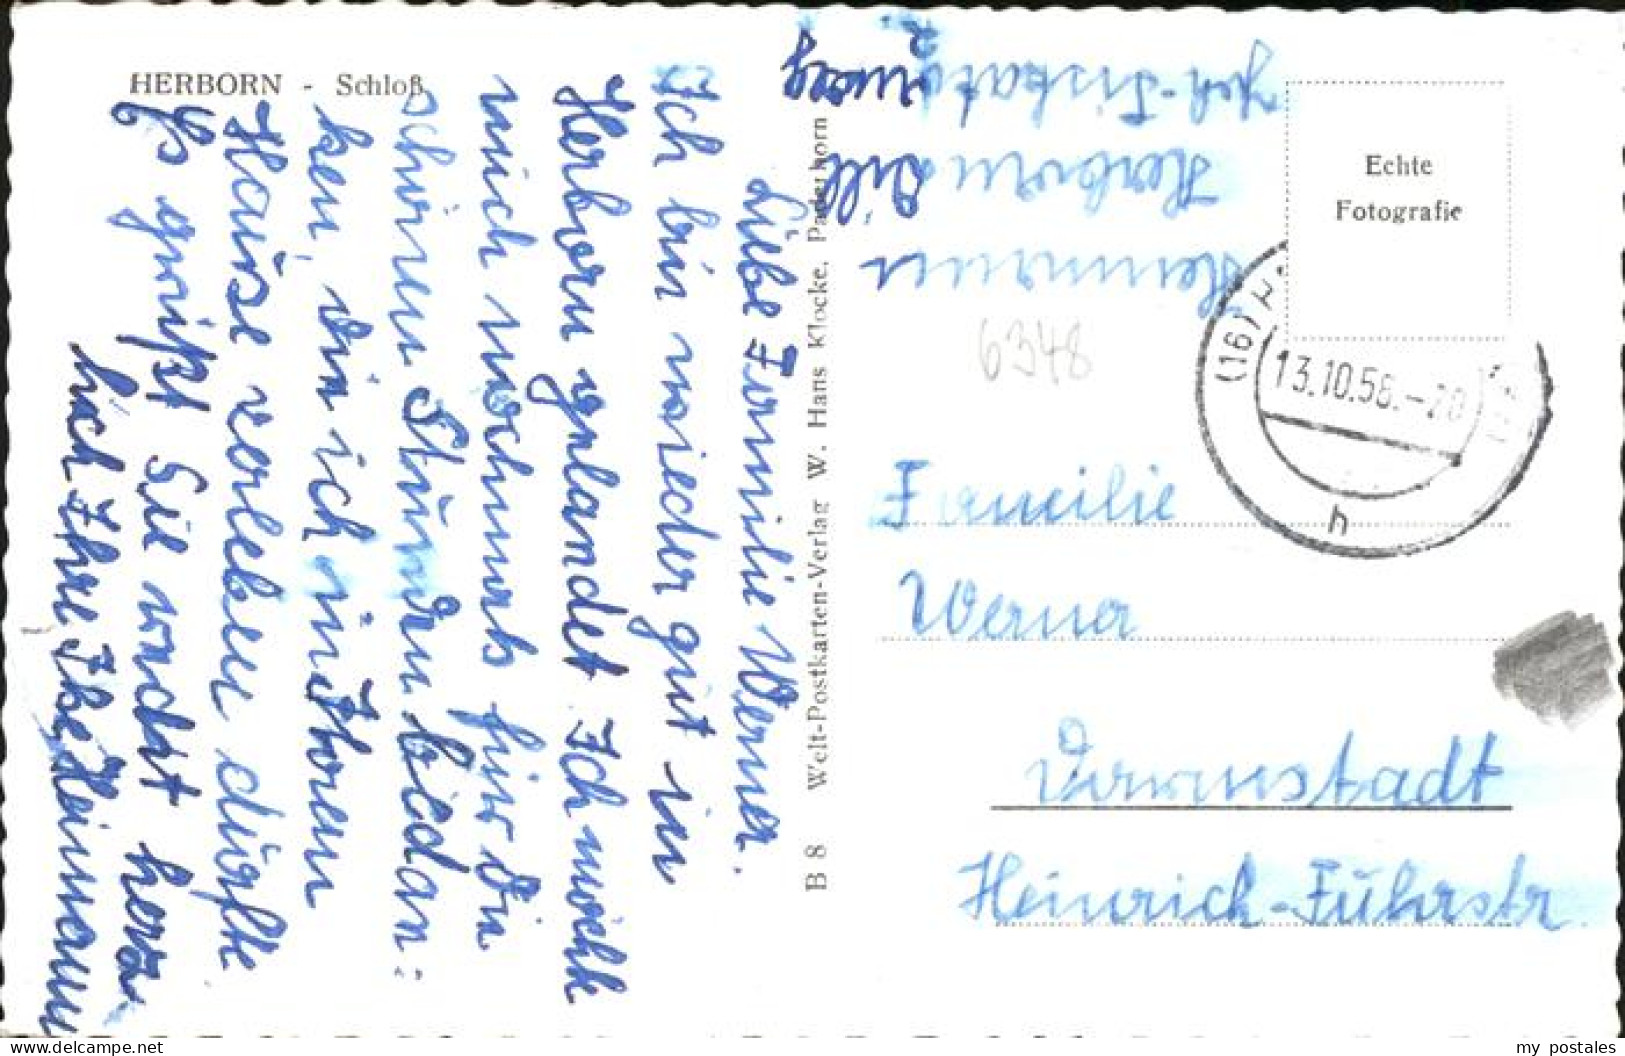 HERBORN - Schloß
Liebe Familie Werner.
Ich bin wieder gut in
Herborn gelandet Ich möchte
mich nochmals für die
schönen Stunden bedan:
ken, die ich in Ihrem
Hause verleben dürfte
Es grüßt Sie recht herz
lich Ihre Ilse Heimann
B 8 Welt-Postkarten-Verlag W. Hans Klocke, Paderborn
Heimann
Herborn Dill
weg 2
Echte
Fotografie
(16)
13.10.58.-20
h
6348
Familie
Werner
Darmstadt
Heinrich-Fuhrstr.
my postales